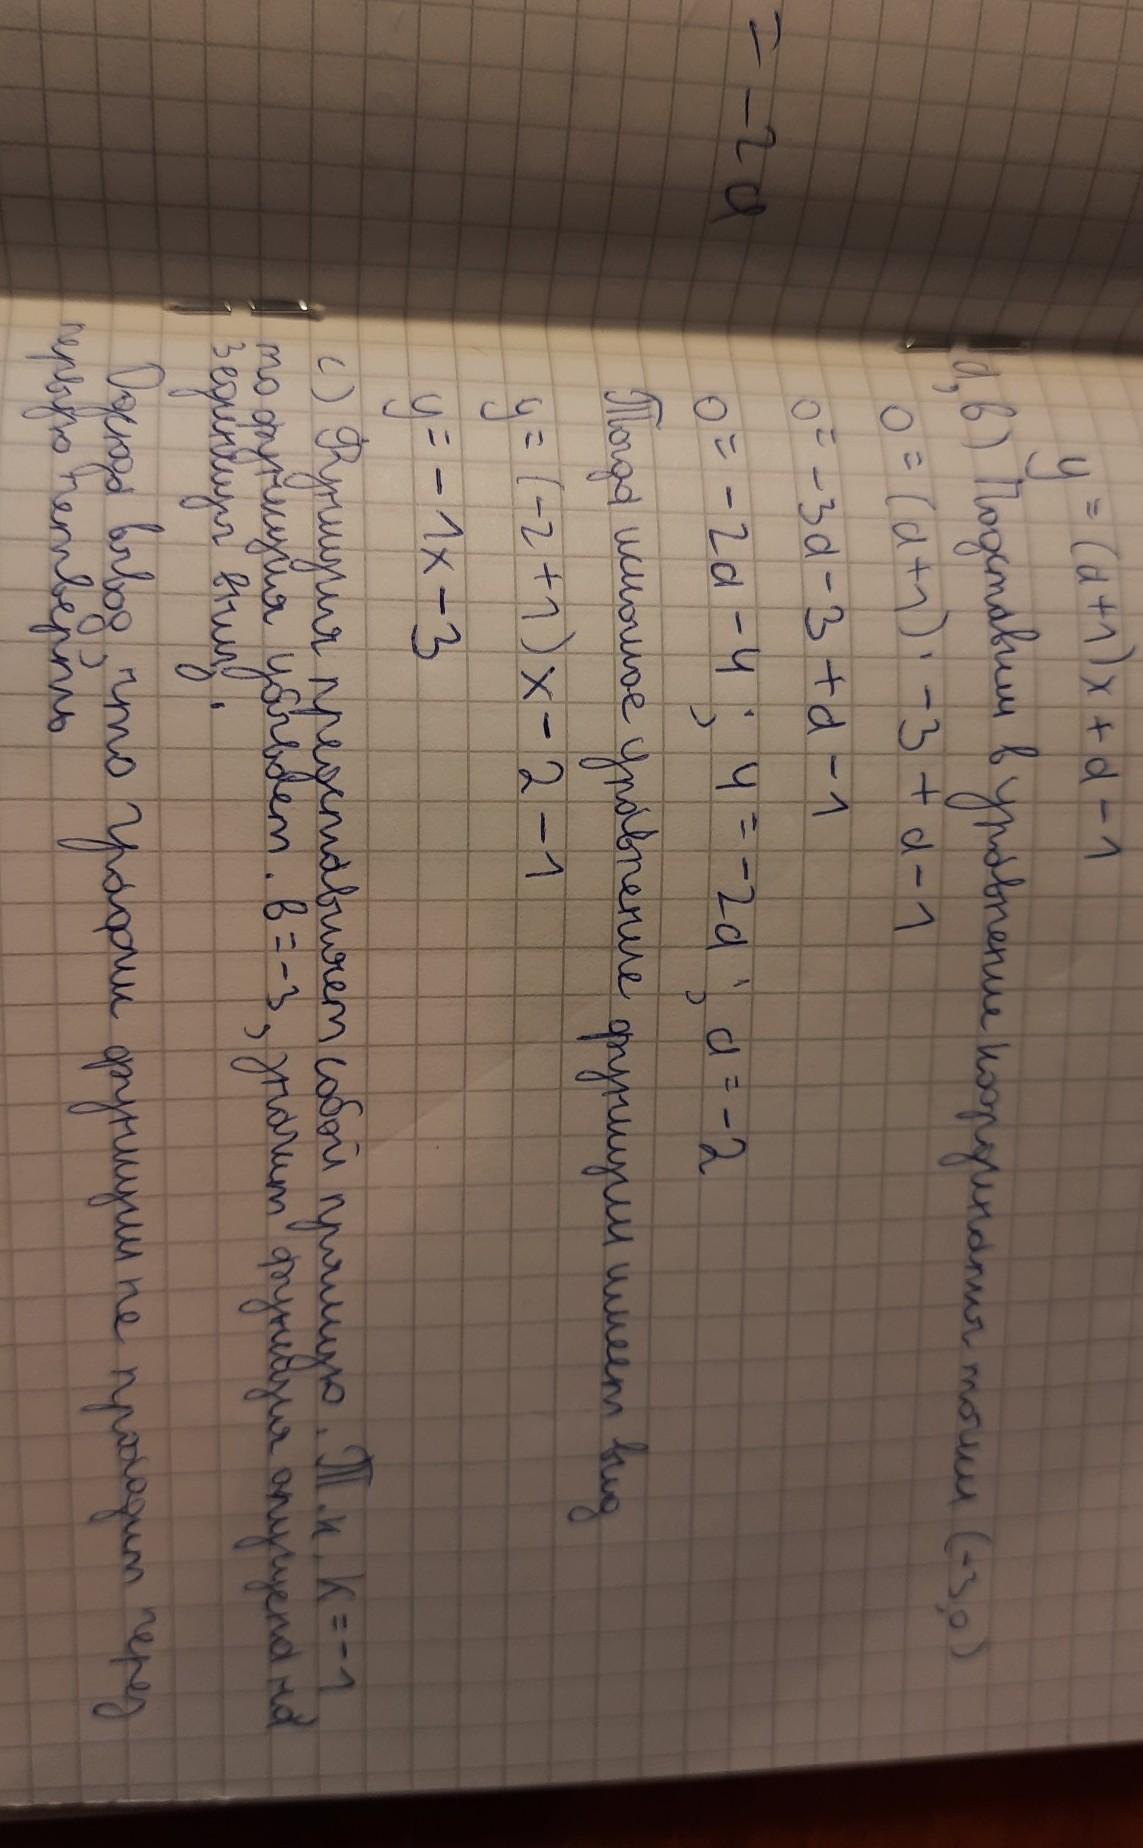 = -2d
y = (d+1)x + d - 1
d, в) Подставим в уравнение координаты точки (-3,0)
0 = (d+1) · -3 + d - 1
0 = -3d - 3 + d - 1
0 = -2d - 4 ; 4 = -2d ; d = -2
Тогда искомое уравнение функции имеет вид
y = (-2+1)x - 2 - 1
y = -1x - 3
c) Функция предоставляет собой прямую. Т.к. K = -1
то функция убывает. в = -3, значит функция опущена на
3 единицы вниз.
Отсюда вывод, что график функции не проходит через
первую четверть